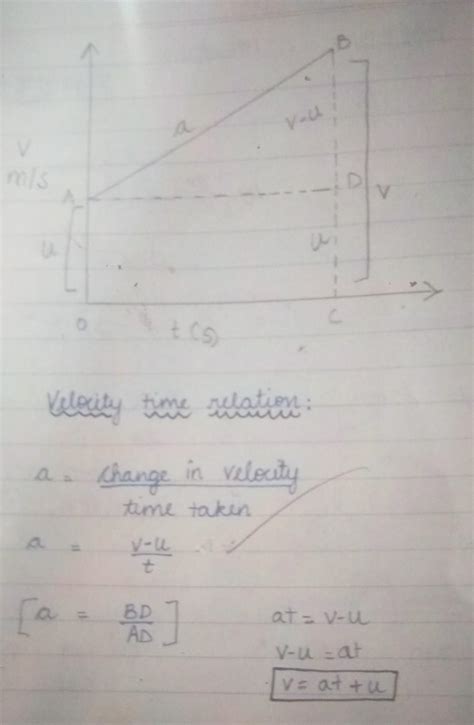 B
a
v-u
V
m/s
D
V
u
u
O
C
t(s)
Velocity time relation:
a = change in velocity
time taken
a = v-u
t
[a = BD
AD]
at = v-u
v-u = at
v = at + u